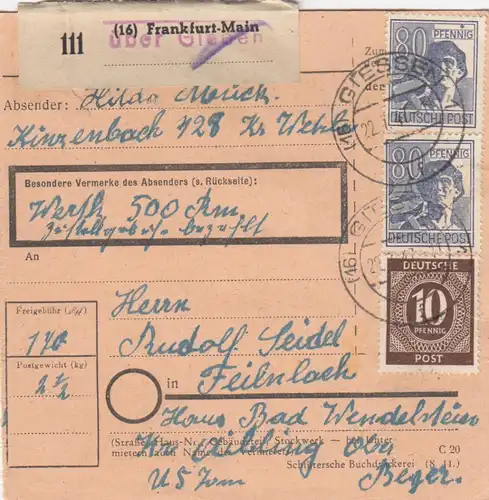 111 (16) Frankfurt-Main
über Gießen
80 PFENNIG
DEUTSCHE POST
80 PFENNIG
DEUTSCHE POST
DEUTSCHE
10
PFENNIG
POST
(16) GIESSEN
22.
(16)
Absender: Hilda
Kinzenbach 128 Kr.
Besondere Vermerke des Absenders (s. Rückseite):
Werth 500 Rm
Zustellgebühr bezahlt
An
Freigebühr
170
Postgewicht (kg)
2 ½
Herrn
Rudolf Seidel
in Feilnbach
Haus Bad Wendelstein
(Straße, Haus-Nr., Gebäudeteil, Stockwerk — bei Untermietern auch Name des Vermieters)
Aibling Ober
Beyer.
US Zom
C 20
Schlütersche Buchdruckerei (8. 41.)